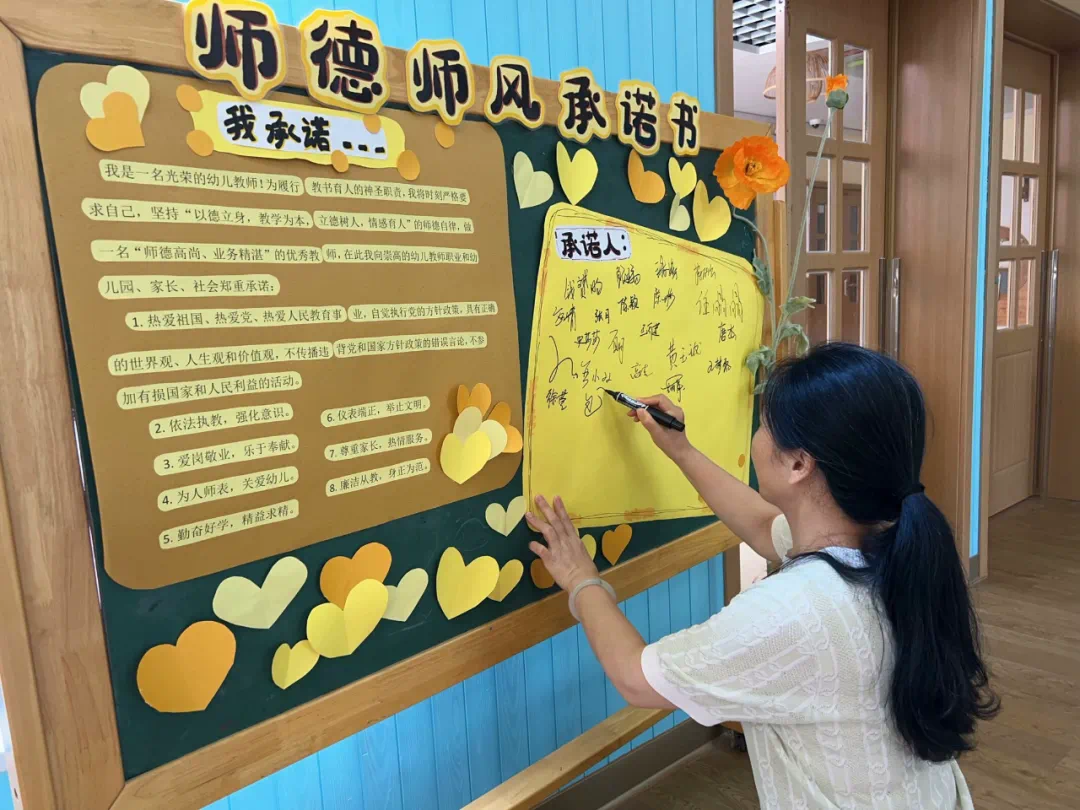 师德师风承诺书
我承诺...
我是一名光荣的幼儿教师！为履行 教书育人的神圣职责，我将时刻严格要
求自己，坚持“以德立身，教学为本，立德树人，情感育人”的师德自律，做
一名“师德高尚、业务精湛”的优秀教 师，在此我向崇高的幼儿教师职业和幼
儿园、家长、社会郑重承诺：
1. 热爱祖国、热爱党、热爱人民教育事 业，自觉执行党的方针政策，具有正确
的世界观、人生观和价值观，不传播违 背党和国家方针政策的错误言论，不参
加有损国家和人民利益的活动。
2. 依法执教，强化意识。
3. 爱岗敬业，乐于奉献。
4. 为人师表，关爱幼儿。
5. 勤奋好学，精益求精。
6. 仪表端正，举止文明。
7. 尊重家长，热情服务。
8. 廉洁从教，身正为范。
承诺人：
唐杰
徐莹